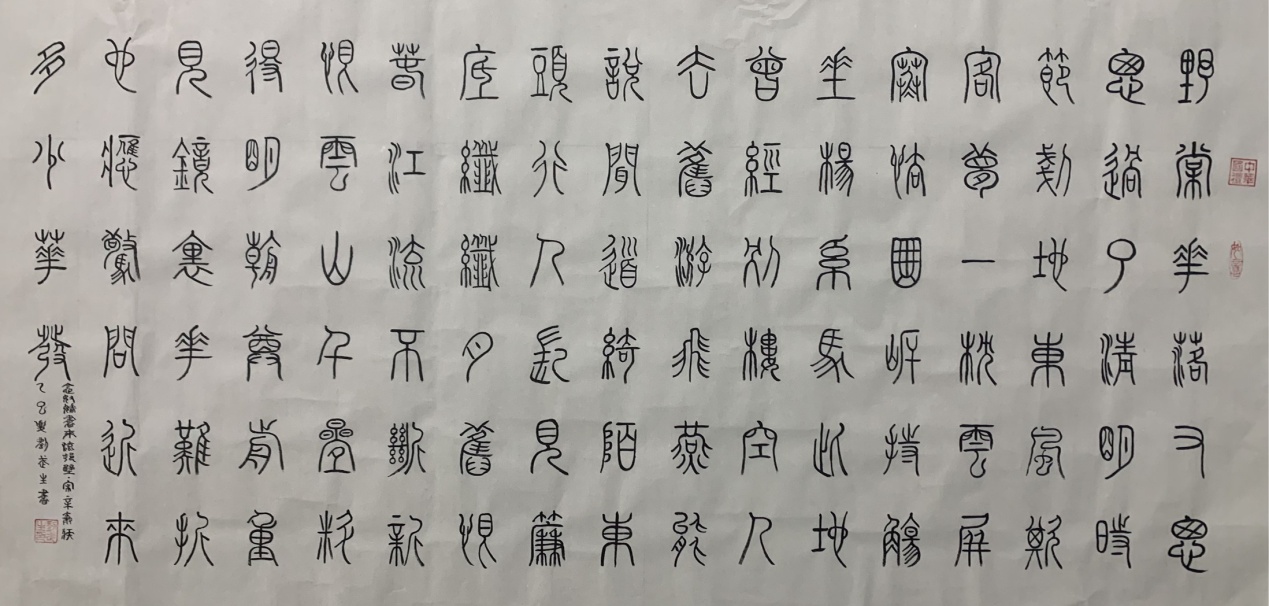 野棠花落又悤
悤過了清明時
節剗地東風欺
客夢一枕雲屏
寒怯曲岸持觴
垂楊系馬此地
曾經別樓空人
去舊游飛燕能
說聞道綺陌東
頭行人長見簾
底纖纖月舊恨
春江流不斷新
恨雲山千疊料
得明朝尊前重
見鏡裏花難折
也應驚問近來
多少華發
念奴嬌書東流村壁宋辛棄疾
乙巳夏劉生書